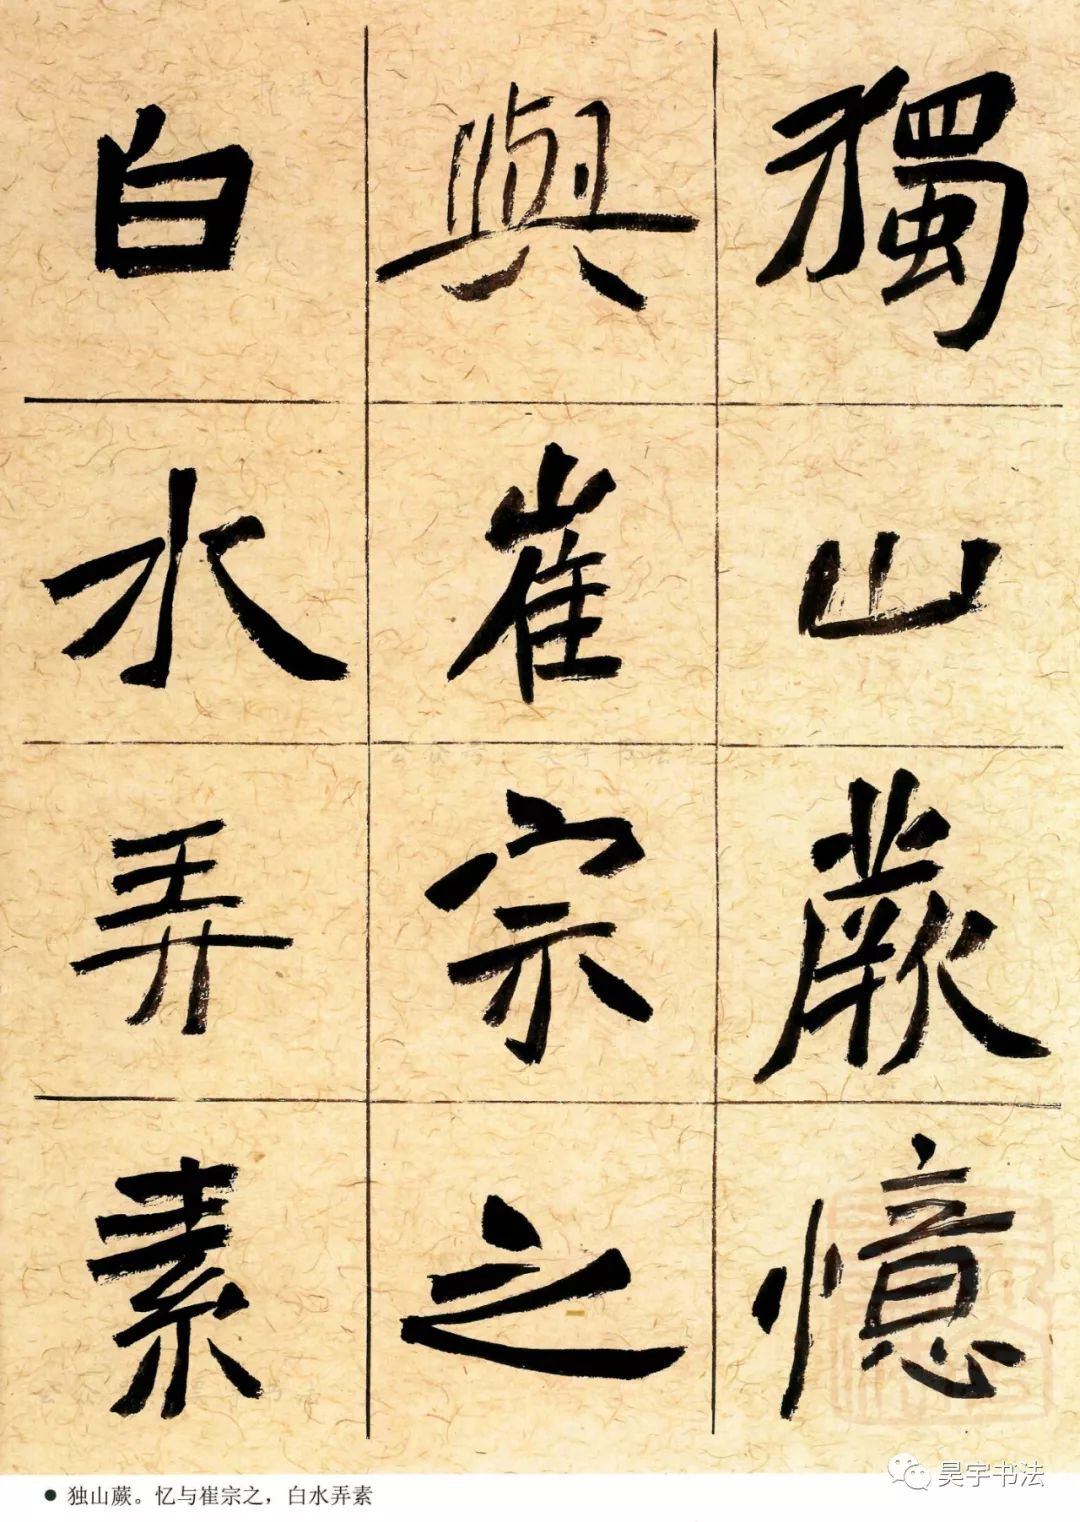 獨山蕨憶
與崔宗之
白水弄素
● 独山蕨。忆与崔宗之，白水弄素
昊宇书法